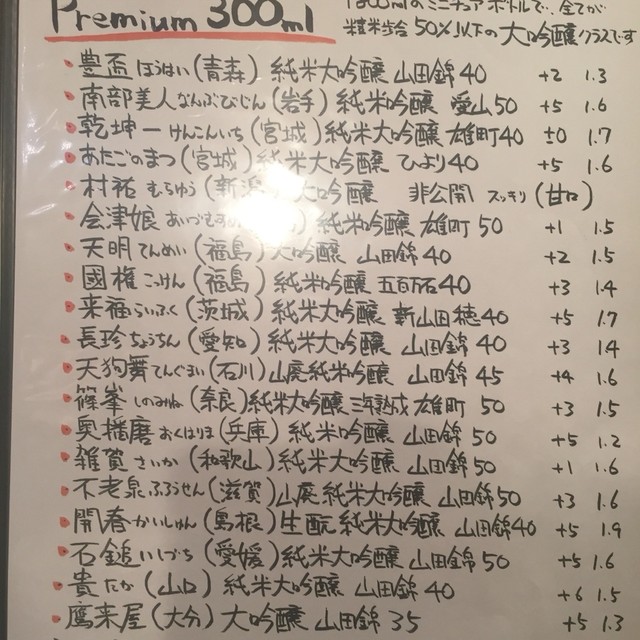 Premium 300ml
ミニチュアボトルで、全てが
精米歩合50%以下の大吟醸クラスです
豊盃ほうはい(青森)純米大吟醸 山田錦40 +2 1.3
南部美人なんぶびじん(岩手)純米吟醸 愛山50 +5 1.6
乾坤一けんこんいち(宮城)純米大吟醸 雄町40 ±0 1.7
あたごのまつ(宮城)純米大吟醸 ひより40 +5 1.6
村祐むらゆう(新潟)大吟醸 非公開 スッキリ(甘口)
会津娘 純米吟醸 雄町50 +1 1.5
天明てんめい(福島)大吟醸 山田錦40 +2 1.5
國権こっけん(福島)純米吟醸 五百万石40 +3 1.4
来福らいふく(茨城)純米大吟醸 新山田穂40 +5 1.7
長珍ちょうちん(愛知)純米大吟醸 山田錦40 +3 1.4
天狗舞てんぐまい(石川)山廃純米吟醸 山田錦45 +4 1.6
篠峯しのみね(奈良)純米大吟醸 雄町50 +3 1.5
奥播磨おくはりま(兵庫)純米吟醸 山田錦50 +5 1.2
雑賀さいか(和歌山)純米大吟醸 山田錦50 +1 1.6
不老泉ふろうせん(滋賀)山廃純米大吟醸 山田錦50 +3 1.6
開春かいしゅん(島根)生酛純米大吟醸 山田錦40 +5 1.9
石鎚いしづち(愛媛)純米大吟醸 山田錦50 +5 1.6
貴たか(山口)純米大吟醸 山田錦40 +6 1.5
鷹来屋(大分)大吟醸 山田錦35 +5 1.3